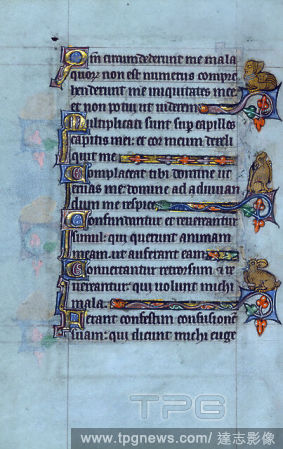 Qm̄ circumdederunt me mala
quoꝝ non est numerus compre
henderunt me iniquitates mee
et non potui ut viderem
Multiplicati sunt sup capillos
capitis mei: et cor meum dereli
quit me
Complaceat tibi domine ut
eruas me domine ad adiuvan
dum me respice
Confundantur et revereantur
simul: qui querunt animam
meam. ut auferant eam
Convertantur retrorsum & re
vereantur: qui volunt michi
mala.
Ferant confestim confusionē
suam: qui dicunt michi euge
TPG
www.tpgnews.com/ 達志影像